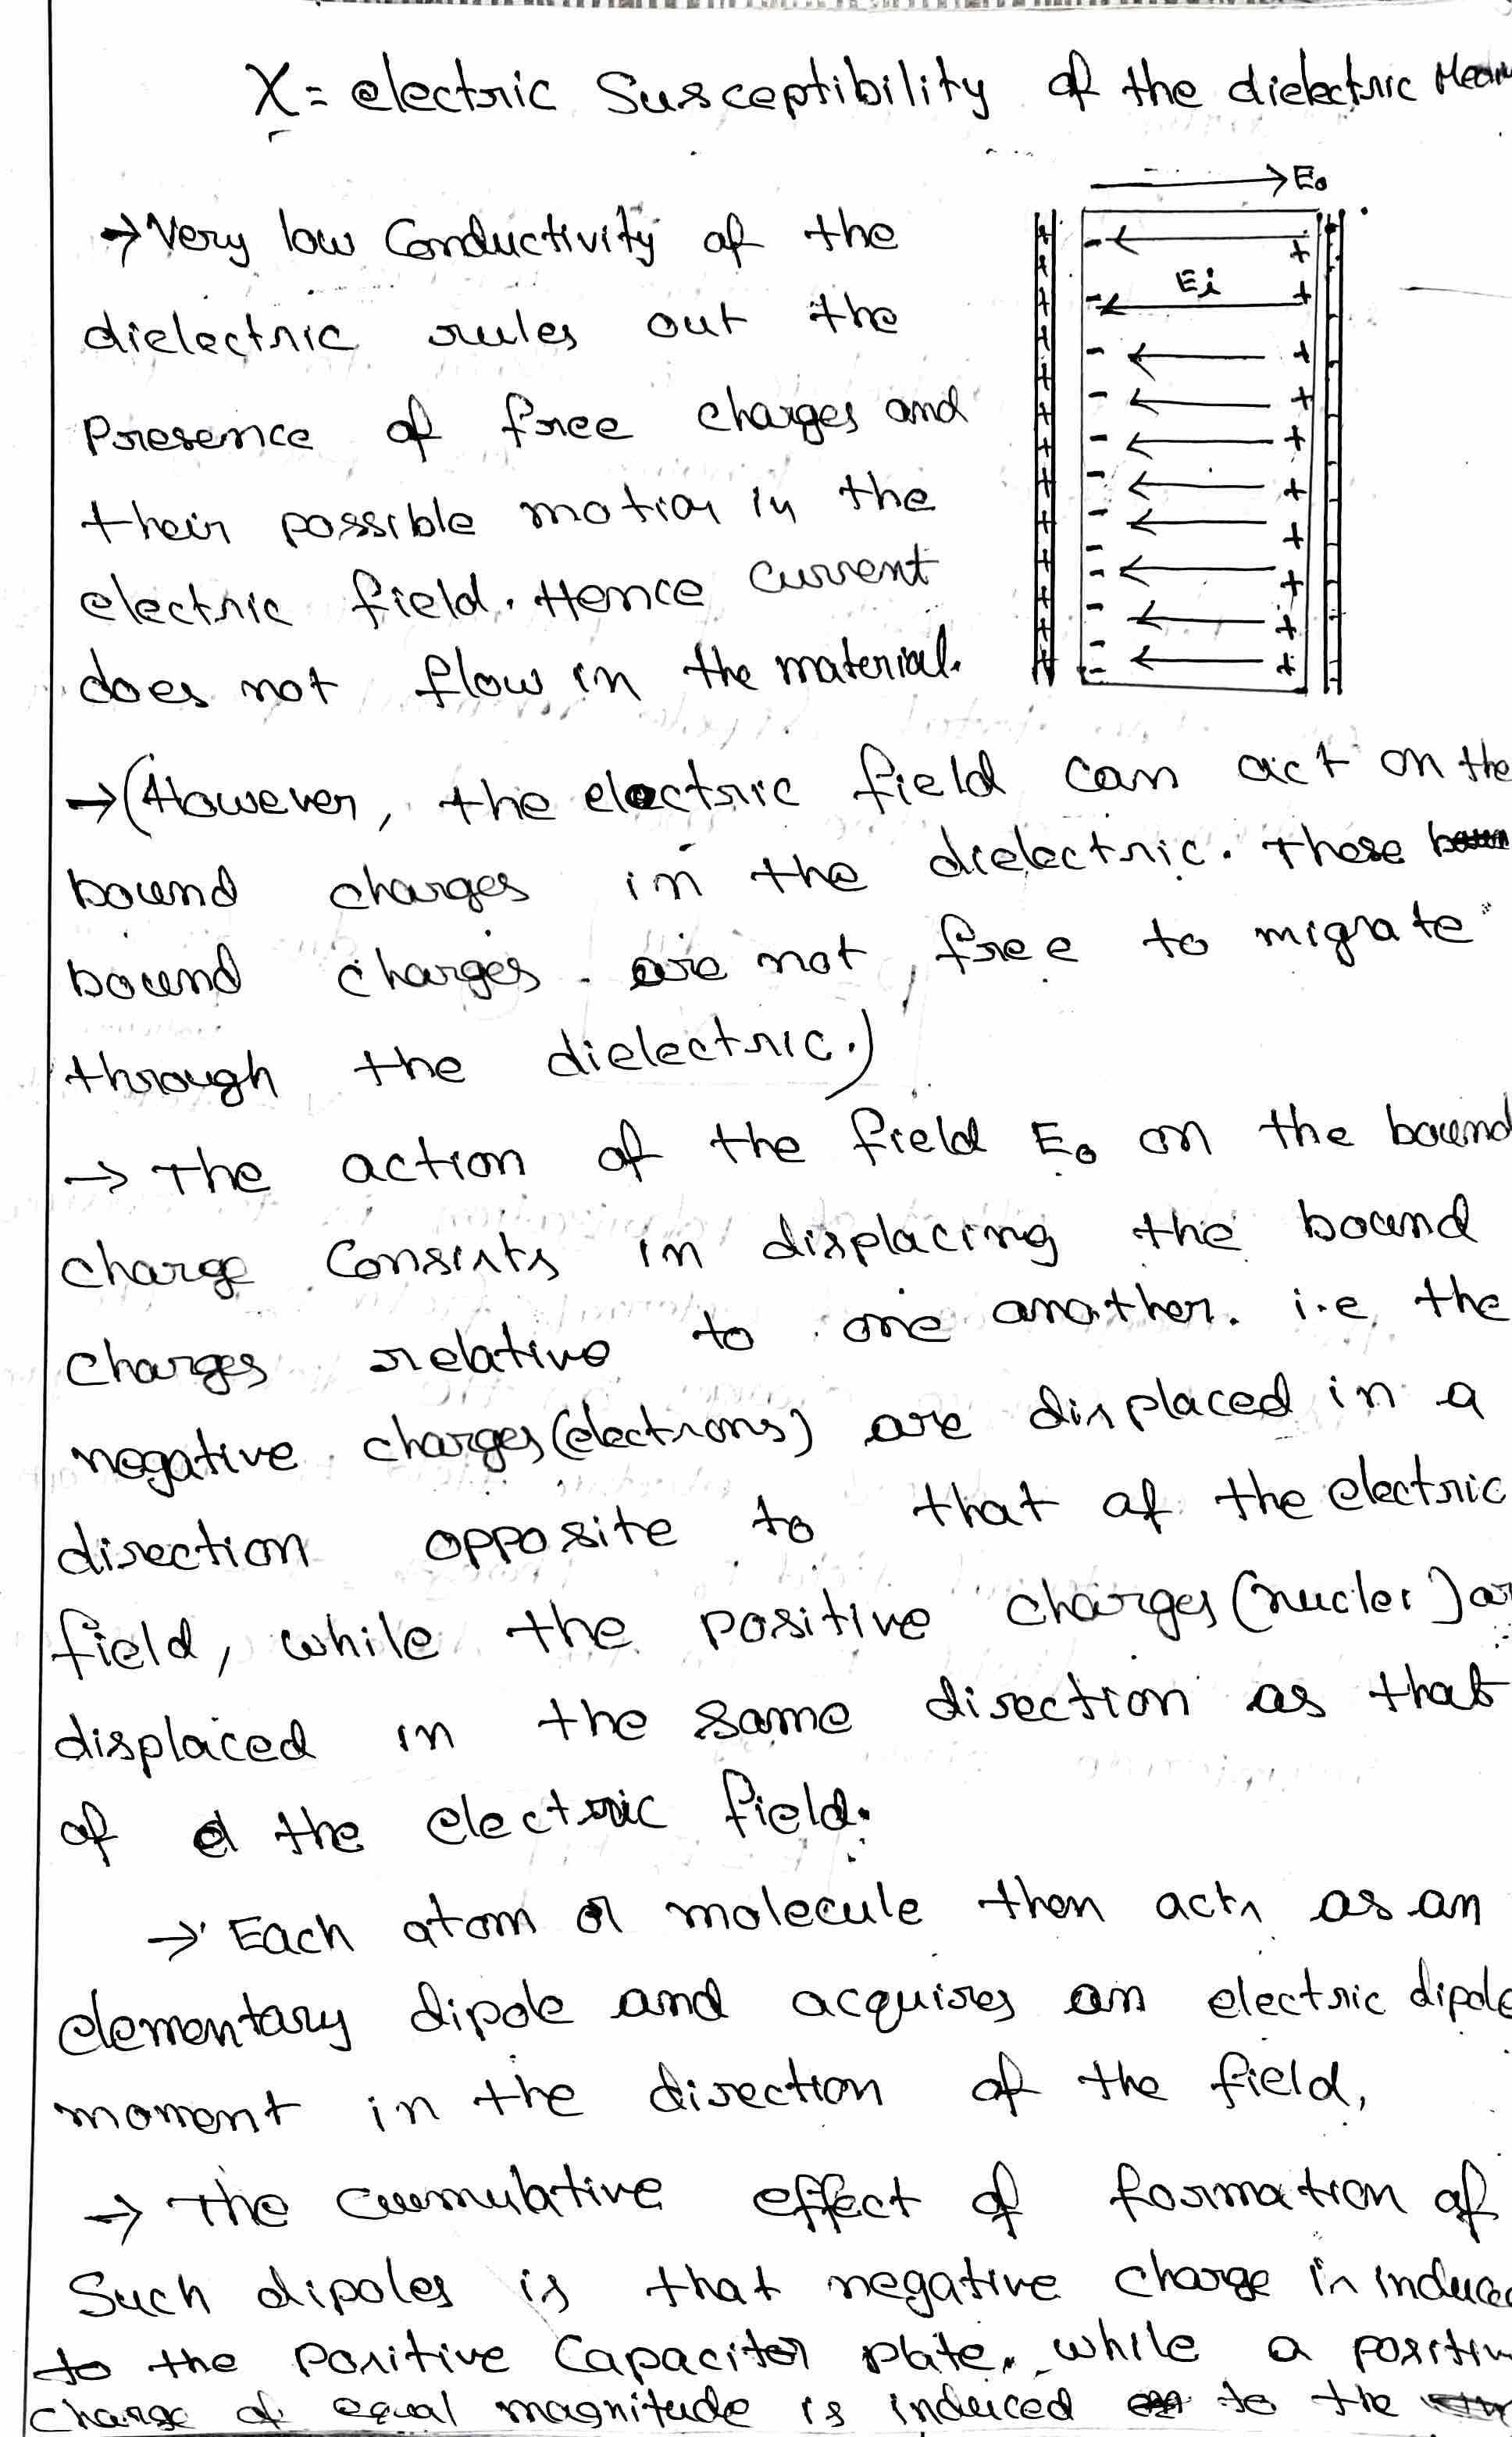 χ = electric Susceptibility of the dielectric
E₀
→ Very low Conductivity of the
dielectric rules out the
Presence of free charges and
their possible motion in the
electric field. Hence current
does not flow in the material.
Ei
→ (However, the electric field can act on the
bound charges in the dielectric. These
bound charges are not free to migrate
through the dielectric.)
→ The action of the field E₀ on the bound
charge Consists in displacing the bound
charges relative to one another. i.e the
negative charges (electrons) are displaced in a
direction opposite to that of the electric
field, while the positive charges (nuclei)
displaced in the same direction as that
of the electric field.
→ Each atom or molecule then acts as an
elementary dipole and acquires an electric dipole
moment in the direction of the field,
→ The cumulative effect of formation of
Such dipoles is that negative charge is
to the Positive Capacitor plate, while a
charge of equal magnitude is induced to the